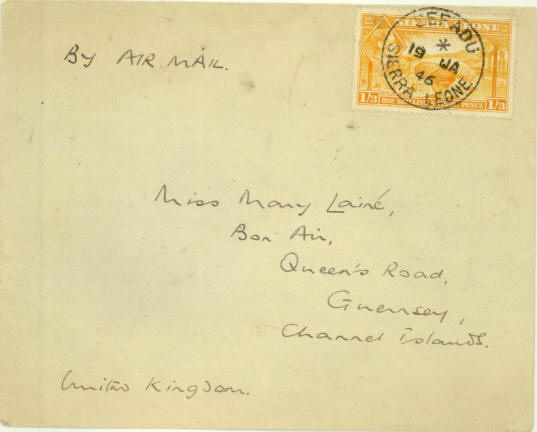 BY AIR MAIL.
SIERRA LEONE
1/3 ONE SHILLING PENCE 1/3
SEFADU
*
19 JA
46
SIERRA LEONE
Miss Mary Lainé,
Bon Air,
Queen's Road,
Guernsey,
Channel Islands.
United Kingdom.